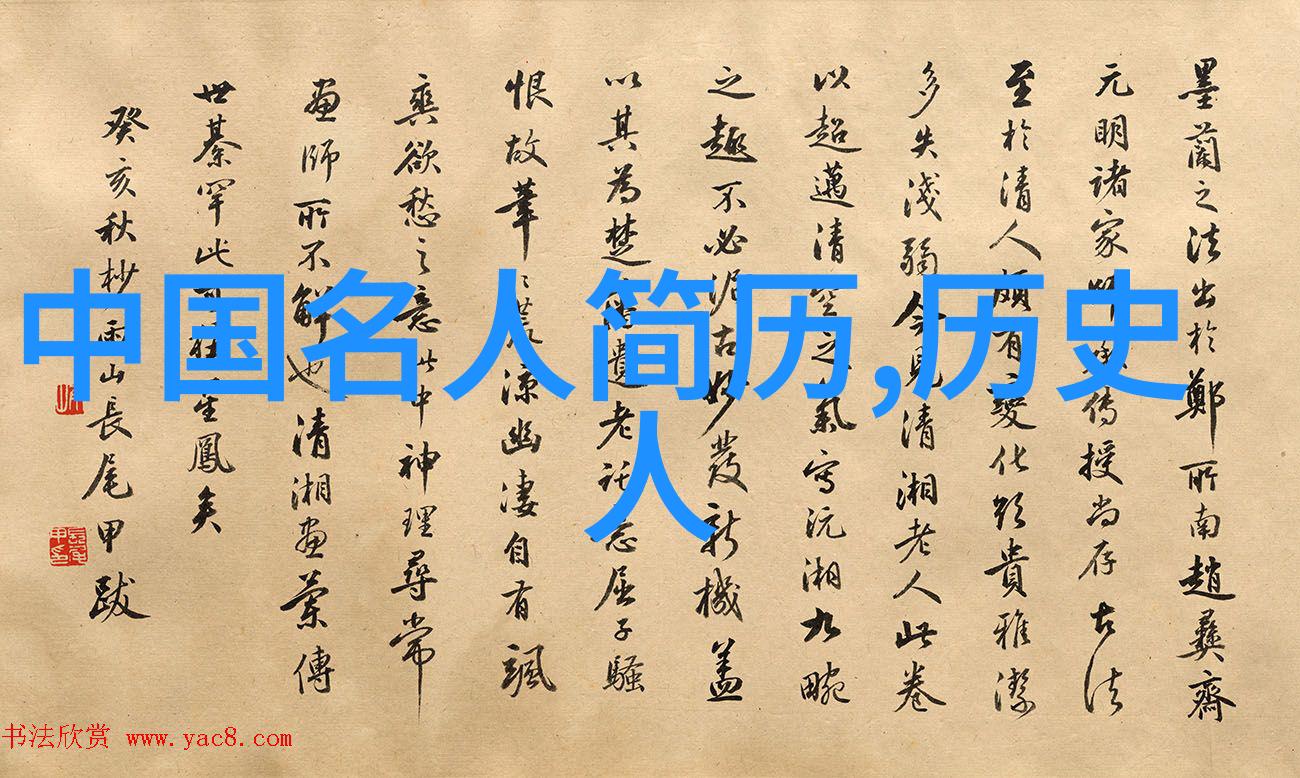 中国名人简历,历史
人
墨蘭之法出於鄭所南趙彝齋
元明諸家傳授尚存古法
至於清人頗有變化貴雅潔
多失淺弱今見清湘老人此卷
以超邁清空之氣寫沅湘九畹
之趣不必泥古妙發新機蓋
以其為楚遺老託屈子騷
恨故筆〻荒涼幽淒自有颯
爽欲愁之意此中神理尋常
畫師所不解也清湘畫蘭傳
世綦罕此可鳳矣
癸亥秋杪雨山長尾甲跋
书法欣赏 www.yac8.com